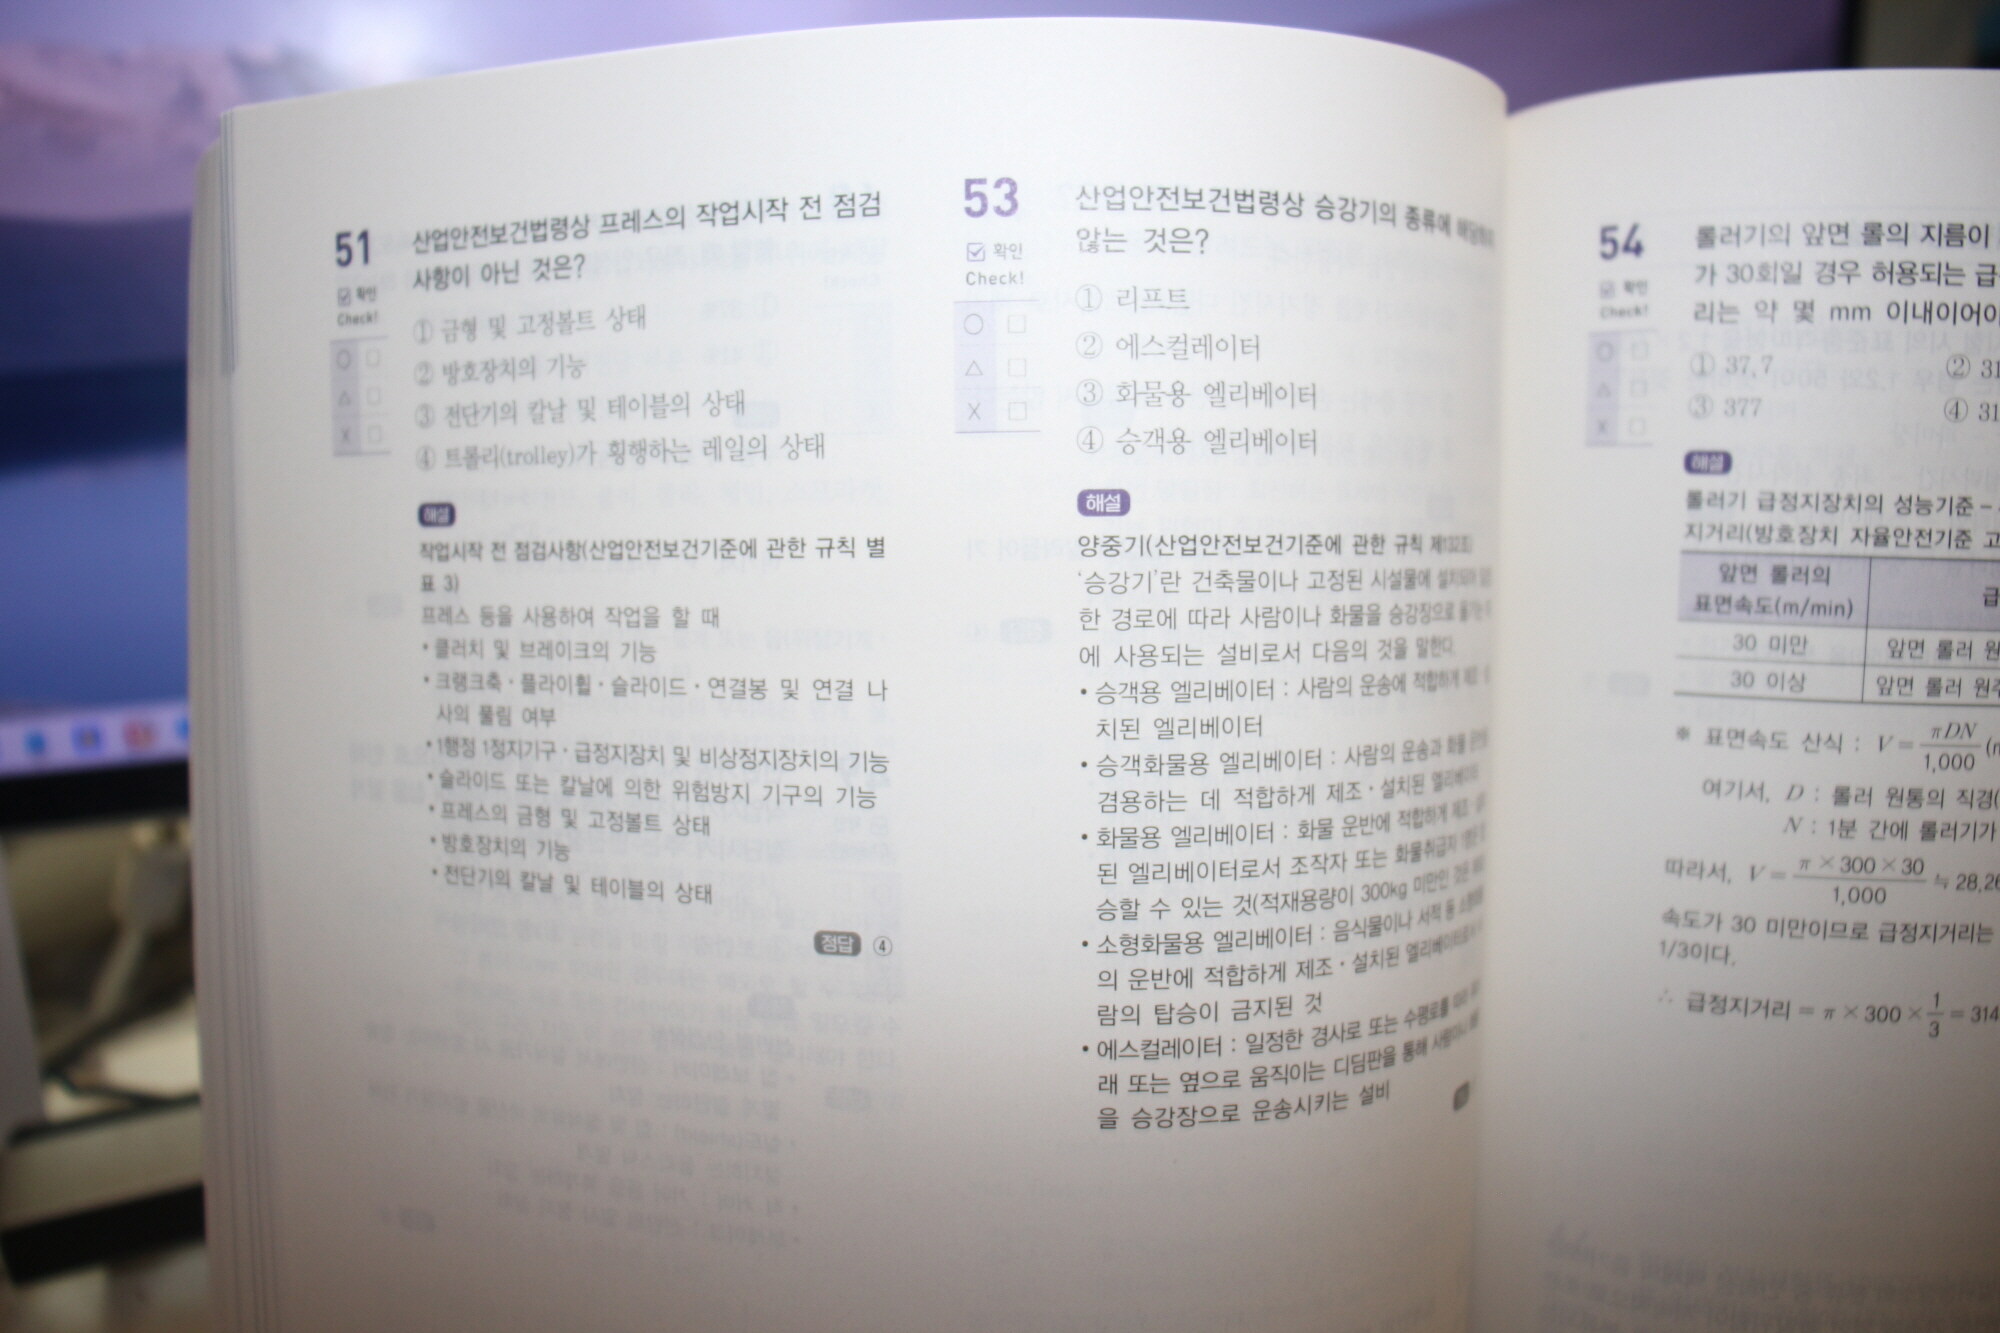 51
산업안전보건법령상 프레스의 작업시작 전 점검
사항이 아닌 것은?
확인
Check!
① 금형 및 고정볼트 상태
② 방호장치의 기능
③ 전단기의 칼날 및 테이블의 상태
④ 트롤리(trolley)가 횡행하는 레일의 상태
해설
작업시작 전 점검사항(산업안전보건기준에 관한 규칙 별
표 3)
프레스 등을 사용하여 작업을 할 때
• 클러치 및 브레이크의 기능
• 크랭크축 · 플라이휠 · 슬라이드 · 연결봉 및 연결 나
사의 풀림 여부
• 1행정 1정지기구 · 급정지장치 및 비상정지장치의 기능
• 슬라이드 또는 칼날에 의한 위험방지 기구의 기능
• 프레스의 금형 및 고정볼트 상태
• 방호장치의 기능
• 전단기의 칼날 및 테이블의 상태
정답 ④
53
산업안전보건법령상 승강기의 종류에 해당하지
않는 것은?
확인
Check!
① 리프트
② 에스컬레이터
③ 화물용 엘리베이터
④ 승객용 엘리베이터
해설
양중기(산업안전보건기준에 관한 규칙 제132조)
'승강기'란 건축물이나 고정된 시설물에 설치되어
한 경로에 따라 사람이나 화물을 승강장으로 옮기는
에 사용되는 설비로서 다음의 것을 말한다.
• 승객용 엘리베이터 : 사람의 운송에 적합하게 제조 ·
치된 엘리베이터
• 승객화물용 엘리베이터 : 사람의 운송과 화물
겸용하는 데 적합하게 제조 · 설치된 엘리베이터
• 화물용 엘리베이터 : 화물 운반에 적합하게 제조 ·
된 엘리베이터로서 조작자 또는 화물취급자
승할 수 있는 것(적재용량이 300kg 미만인 것은
• 소형화물용 엘리베이터 : 음식물이나 서적 등
의 운반에 적합하게 제조 · 설치된 엘리베이터로서
람의 탑승이 금지된 것
• 에스컬레이터 : 일정한 경사로 또는 수평로를 따라
래 또는 옆으로 움직이는 디딤판을 통해 사람이나
을 승강장으로 운송시키는 설비
54
롤러기의 앞면 롤의 지름이
가 30회일 경우 허용되는 급
리는 약 몇 mm 이내이어야
확인
Check!
① 37.7
② 31
③ 377
④ 31
해설
롤러기 급정지장치의 성능기준 –
지거리(방호장치 자율안전기준 고
앞면 롤러의
표면속도(m/min)
급
30 미만 앞면 롤러 원
30 이상 앞면 롤러 원주
※ 표면속도 산식 : V = πDN/1,000 (m
여기서, D : 롤러 원통의 직경(
N : 1분 간에 롤러기가
따라서, V = π × 300 × 30/1,000 ≒ 28.26
속도가 30 미만이므로 급정지거리는
1/3이다.
∴ 급정지거리 = π × 300 × 1/3 = 314